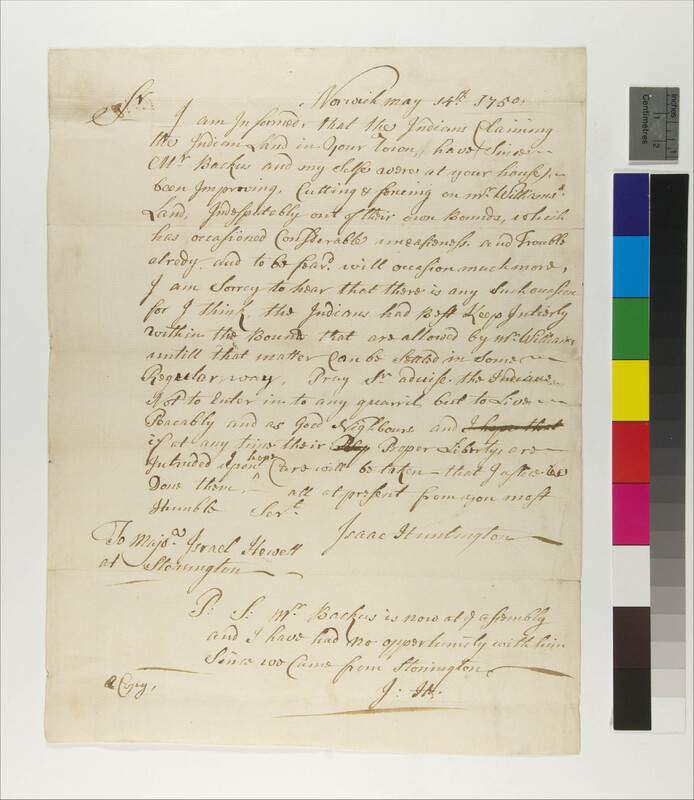 Norwich may 14th 1750,
Sr.
I am Informed, that the Indians Claiming
the Indian Land in Your town, have Since
Mr Backus and my Self were at your house,
been Improving, Cutting & fencing on mr. Williams's
Land, Indesputably out of their own Bounds, which
has occasioned Considerable uneasiness and Trouble
alredy and to be feard. will occasion much more,
I am Sorrey to hear that there is any Such occasion
for I think the Indians had Best Keep Intierly
within the Bounds that are allowed by mr. Williams
untill that matter Can be Setled in Some
Regular way, Pray Sr advise the Indians
Not to Enter in to any quarril but to Live
Peacably and as Good Nighbours and I hope that
if at any time their Proper Liberty are
Intruded upon hope Care will be taken that Justice be
Done them, ^ all at present from you most
Humble Servt.
Isaac Huntington
To Majo.r Israel Hewett
at Stonington
P: S: Mr. Backus is now at ye assembly
and I have had no oppertunity with him
Since we Came from Stonington
J: H:
a Copy,
Inches
Centimetres
1
1
2